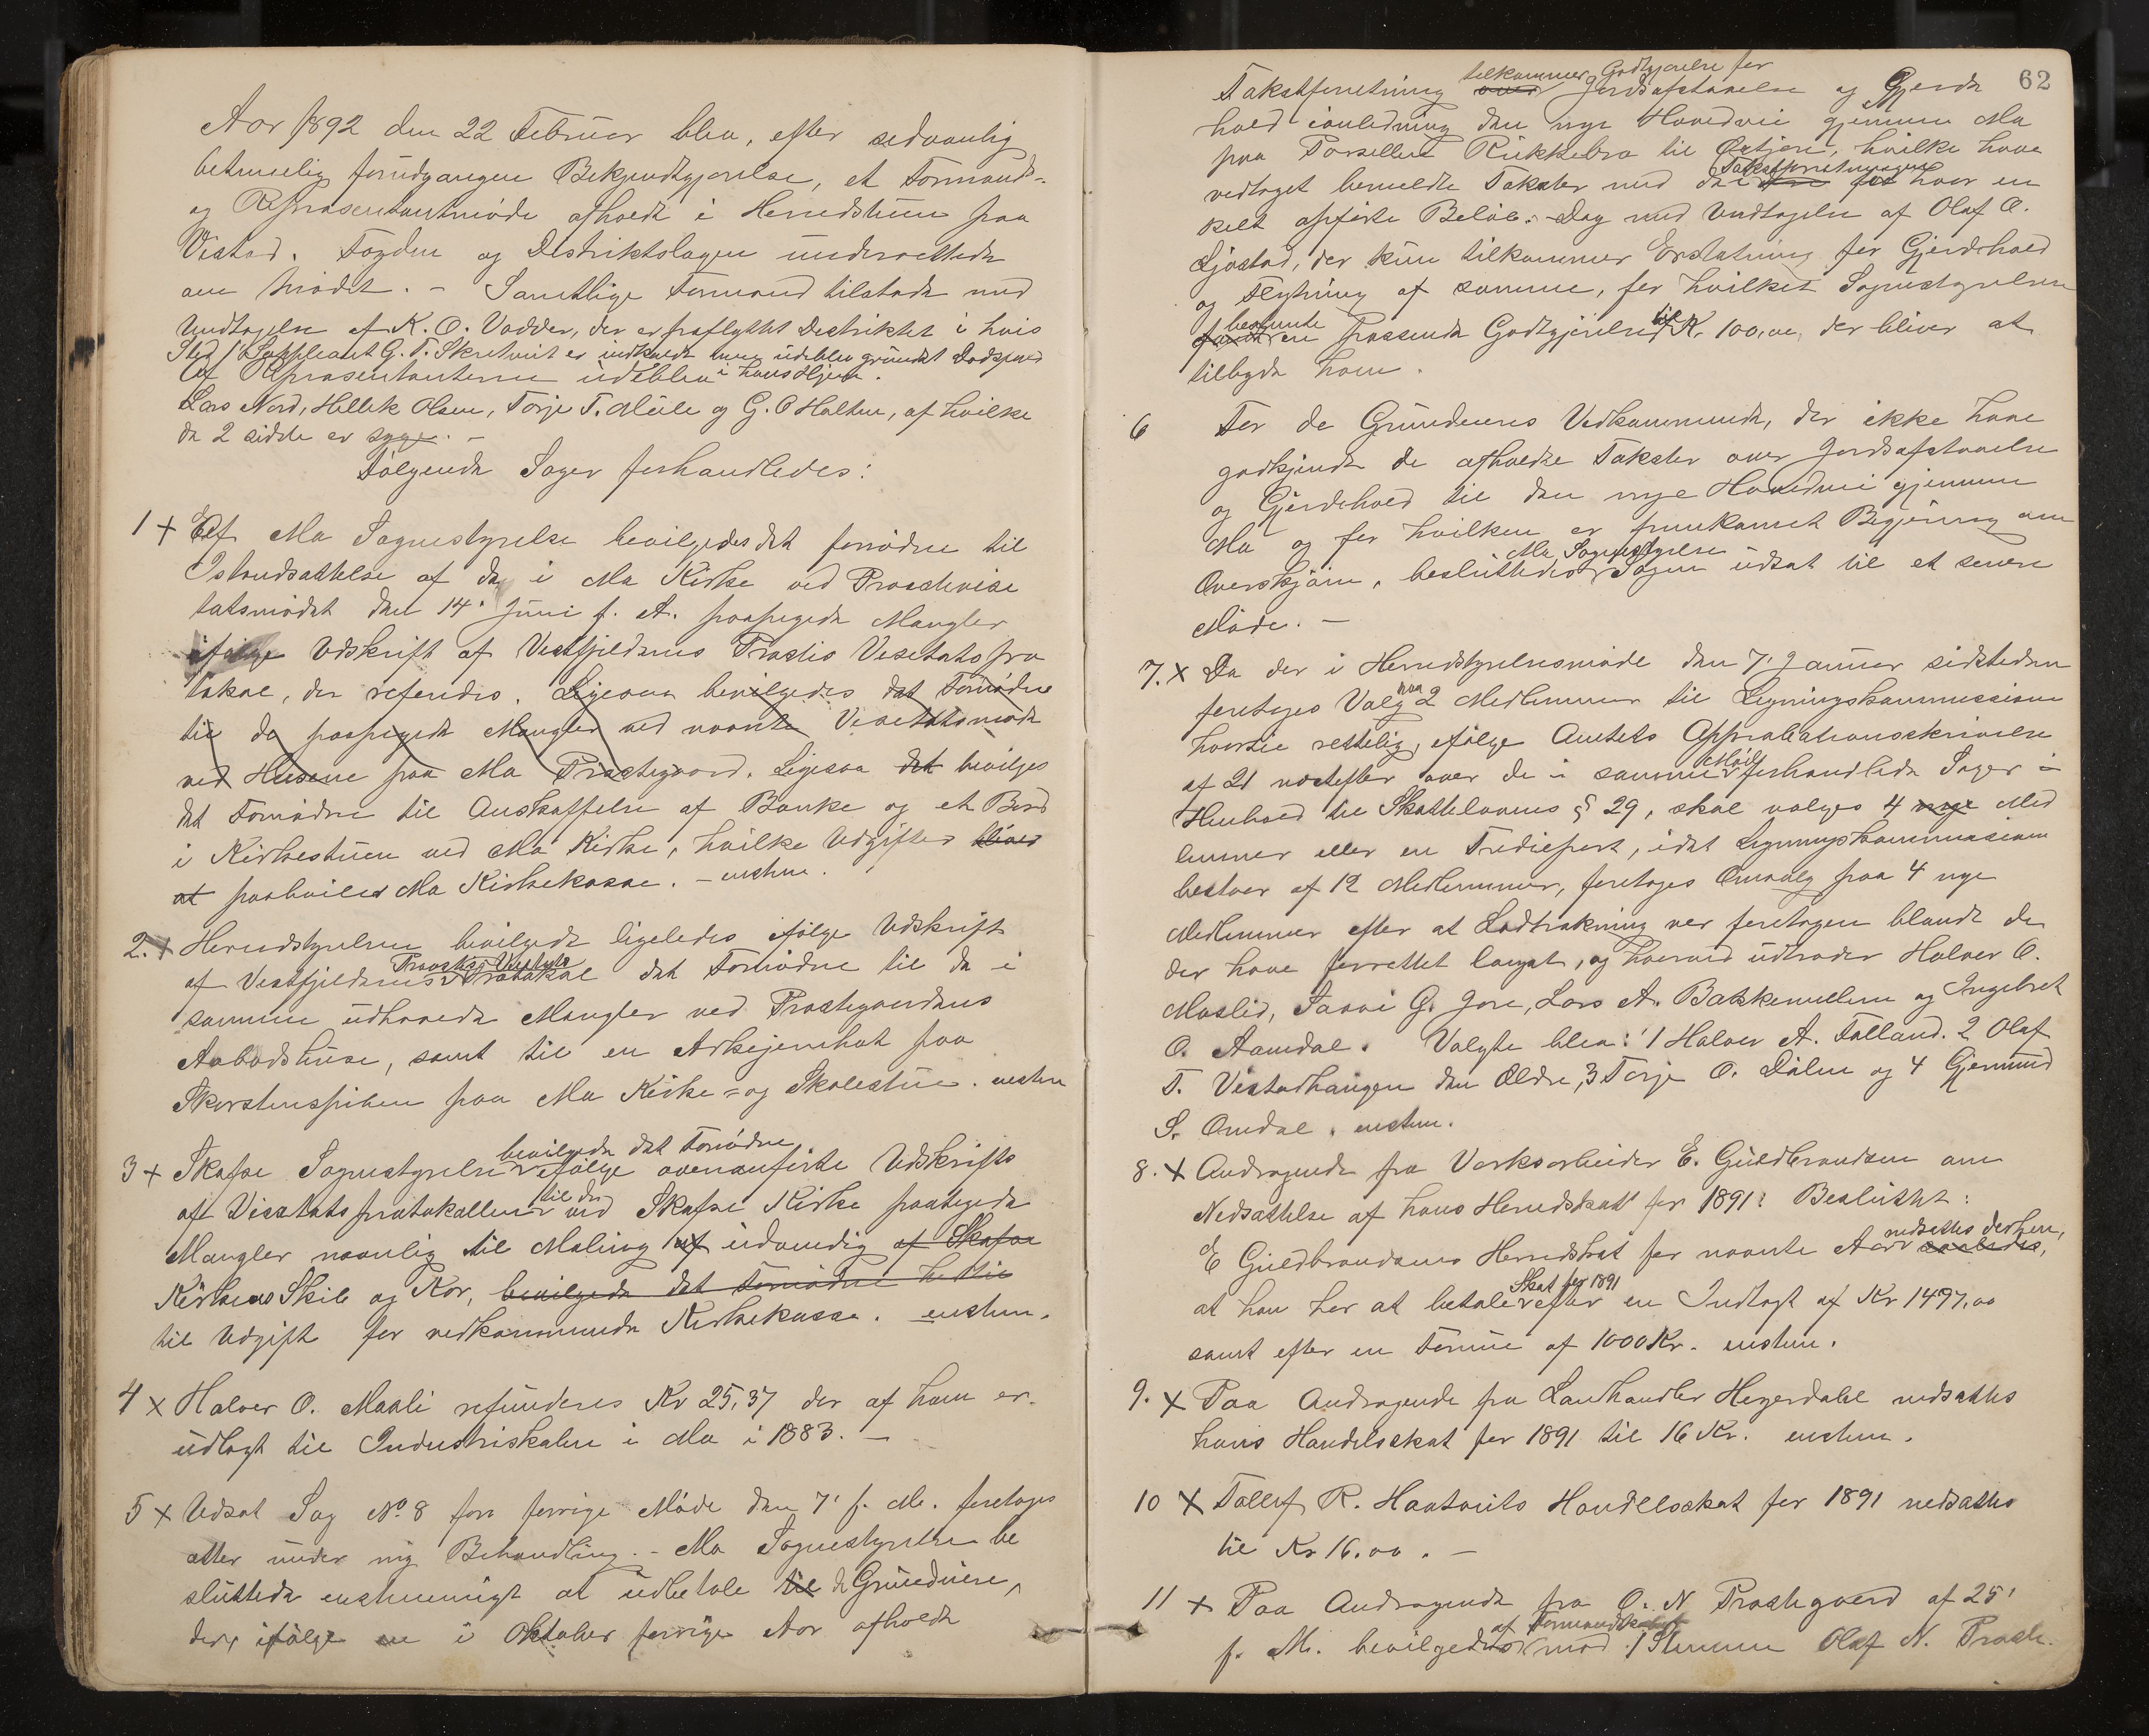 Aar 1892 den 22 Februar blev, efter sedvanlig
betimelig forudgangen Bekjendtgjørelse, et Formands-
og Repræsentantmøde afholdt i Herredstuen paa
Vistad. Fogden og Distriktslægen underrettede
om Mødet. – Samtlige Formænd tilstede med
Undtagelse af K. O. Vadder, der er fraflyttet Distriktet i hvis
Sted 1' Suppleant G. T. Skretveit er indkaldt men udeblev grundet Dødsfald
i hans Hjem.
Af Repræsentanterne udeblev
Lars Nord, Hellik Olsen, Torje T. Mule og G. O Holten, af hvilke
de 2 sidste er syge. –
Følgende Sager forhandledes:
1 + Af Mo Sognestyrelse bevilgedes det fornødne til
Istandsættelse af de i Mo Kirke ved Provstevisi
tatsmødet den 14' Juni f. A. paapegede Mangler
ifølge Udskrift af Vestfjeldenes Provstis Visitatspro
tokol, der refereres. Ligesaa bevilgedes det Fornødne
til de paapegede Mangler ved nævnte Visitatsmøde
ved Husene paa Mo Præstegaard. Ligesaa det bevilges
det Fornødne til Anskaffelse af Bænke og et Bord
i Kirkestuen ved Mo Kirke, hvilke Udgifter bliver
at paahviler Mo Kirkekasse. – enstem.
2. + Herredstyrelsen bevilgede ligeledes ifølge Udskrift
Provsti Visitats
af Vestfjeldenes Protokol det Fornødne til de i
samme udhævede Mangler ved Præstegaardens
Aabodshuse, samt til en Arkjernhat paa
Skorstenspiben paa Mo Kirke- og Skolestue. enstem
bevilgede det Fornødne
3 + Skafse Sognestyrelse ifølge ovenanførte Udskrifts
til de
af Visitatsprotokollen ved Skafse Kirke paapegede
Mangler navnlig til Maling af udvendig af Skafse
Kirkens Skib og Kor, bevilgede det Fornødne hertil
til Udgift for vedkommende Kirkekasse. enstem.
4 x Halvor O. Maali refunderes Kr 25,37 der af ham er
udlagt til Industriskolen i Mo i 1883. –
5 x Udsat Sag No. 8 fra forrige Møde den 7' f. M. foretoges
atter under ny Behandling. – Mo Sognestyrelse be
sluttede enstemmigt at udbetale til de Grundeiere,
der, ifølge en i Oktober forrige Aar afholdt
62
tilkommer Godtgjørelse for
Takstforretning over Jordsafstaaelse og Gjerde
hold i anledning den nye Hovedvei gjennem Mo
paa Parsellen Rukkebro til Østjore, hvilke have
Takstforretningen
vedtaget bemeldte Takster med de i den for hver en
kelt opførte Beløb. – Dog med Undtagelse af Olaf O.
Sjøstad, der kun tilkommer Erstatning for Gjerdehold
og Flytning af samme, for hvilket Sognestyrelsen
bestemte til
fandt en passende Godtgjørelse af Kr. 100,00, der bliver at
tilbyde ham.
6 For de Grundeieres Vedkommende, der ikke have
godkjendt de afholdte Takster over Jordsafstaaelse
og Gjerdehold til den nye Hovedvei gjennem
Mo og for hvilken er fremkommet Begjæring om
Mo Sognestyrelse
Overskjøn, besluttedes Sagen udsat til et senere
Møde. –
7. x Da der i Herredstyrelsesmøde den 7' Januar sidstleden
paa
foretoges Valg 2 Medlemmer til Ligningskommissionen
hvortil rettelig, ifølge Amtets Approbationsskrivelse
Møde
af 21 næstefter over de i samme forhandlede Sager i
Henhold til Skattelovens § 29, skal vælges 4 nye Med
lemmer eller en Trediepart, idet Ligningskommissionen
bestaar af 12 Medlemmer, foretoges Omvalg paa 4 nye
Medlemmer efter at Lodtrækning var foretagen blandt de
der have forrettet længst, og hvorved udtræder Halvor O.
Moslid, Saavi G. Jore, Lars A. Bakkemellem og Ingebret
O. Aamdal. Valgte blev: 1 Halvor A. Falland. 2 Olaf
T. Vistadhaugen den Ældre, 3 Torje O. Dalen og 4 Gjermund
S. Omdal. enstem.
8. x Andragende fra Værksarbeider E. Guldbrandsen om
Nedsættelse af hans Herredsskat for 1891. Besluttet:
nedsættes derhen,
E Guldbrandsens Herredskat for nævnte Aar saaledes,
Skat for 1891
at han har at betale efter en Indtægt af Kr 1497,00
samt efter en Formue af 1000 Kr. enstem.
9. x Paa Andragende fra Landhandler Hegerdahl nedsættes
hans Handelsskat for 1891 til 16 Kr. enstem.
10 x Tollef R. Haatveits Handelsskat for 1891 nedsættes
til Kr 16.00. –
11 x Paa Andragende fra O. N Præstegaard af 25'
af Formandskabet
f. M. bevilgedes mod 1 Stemme Olaf N. Præste.